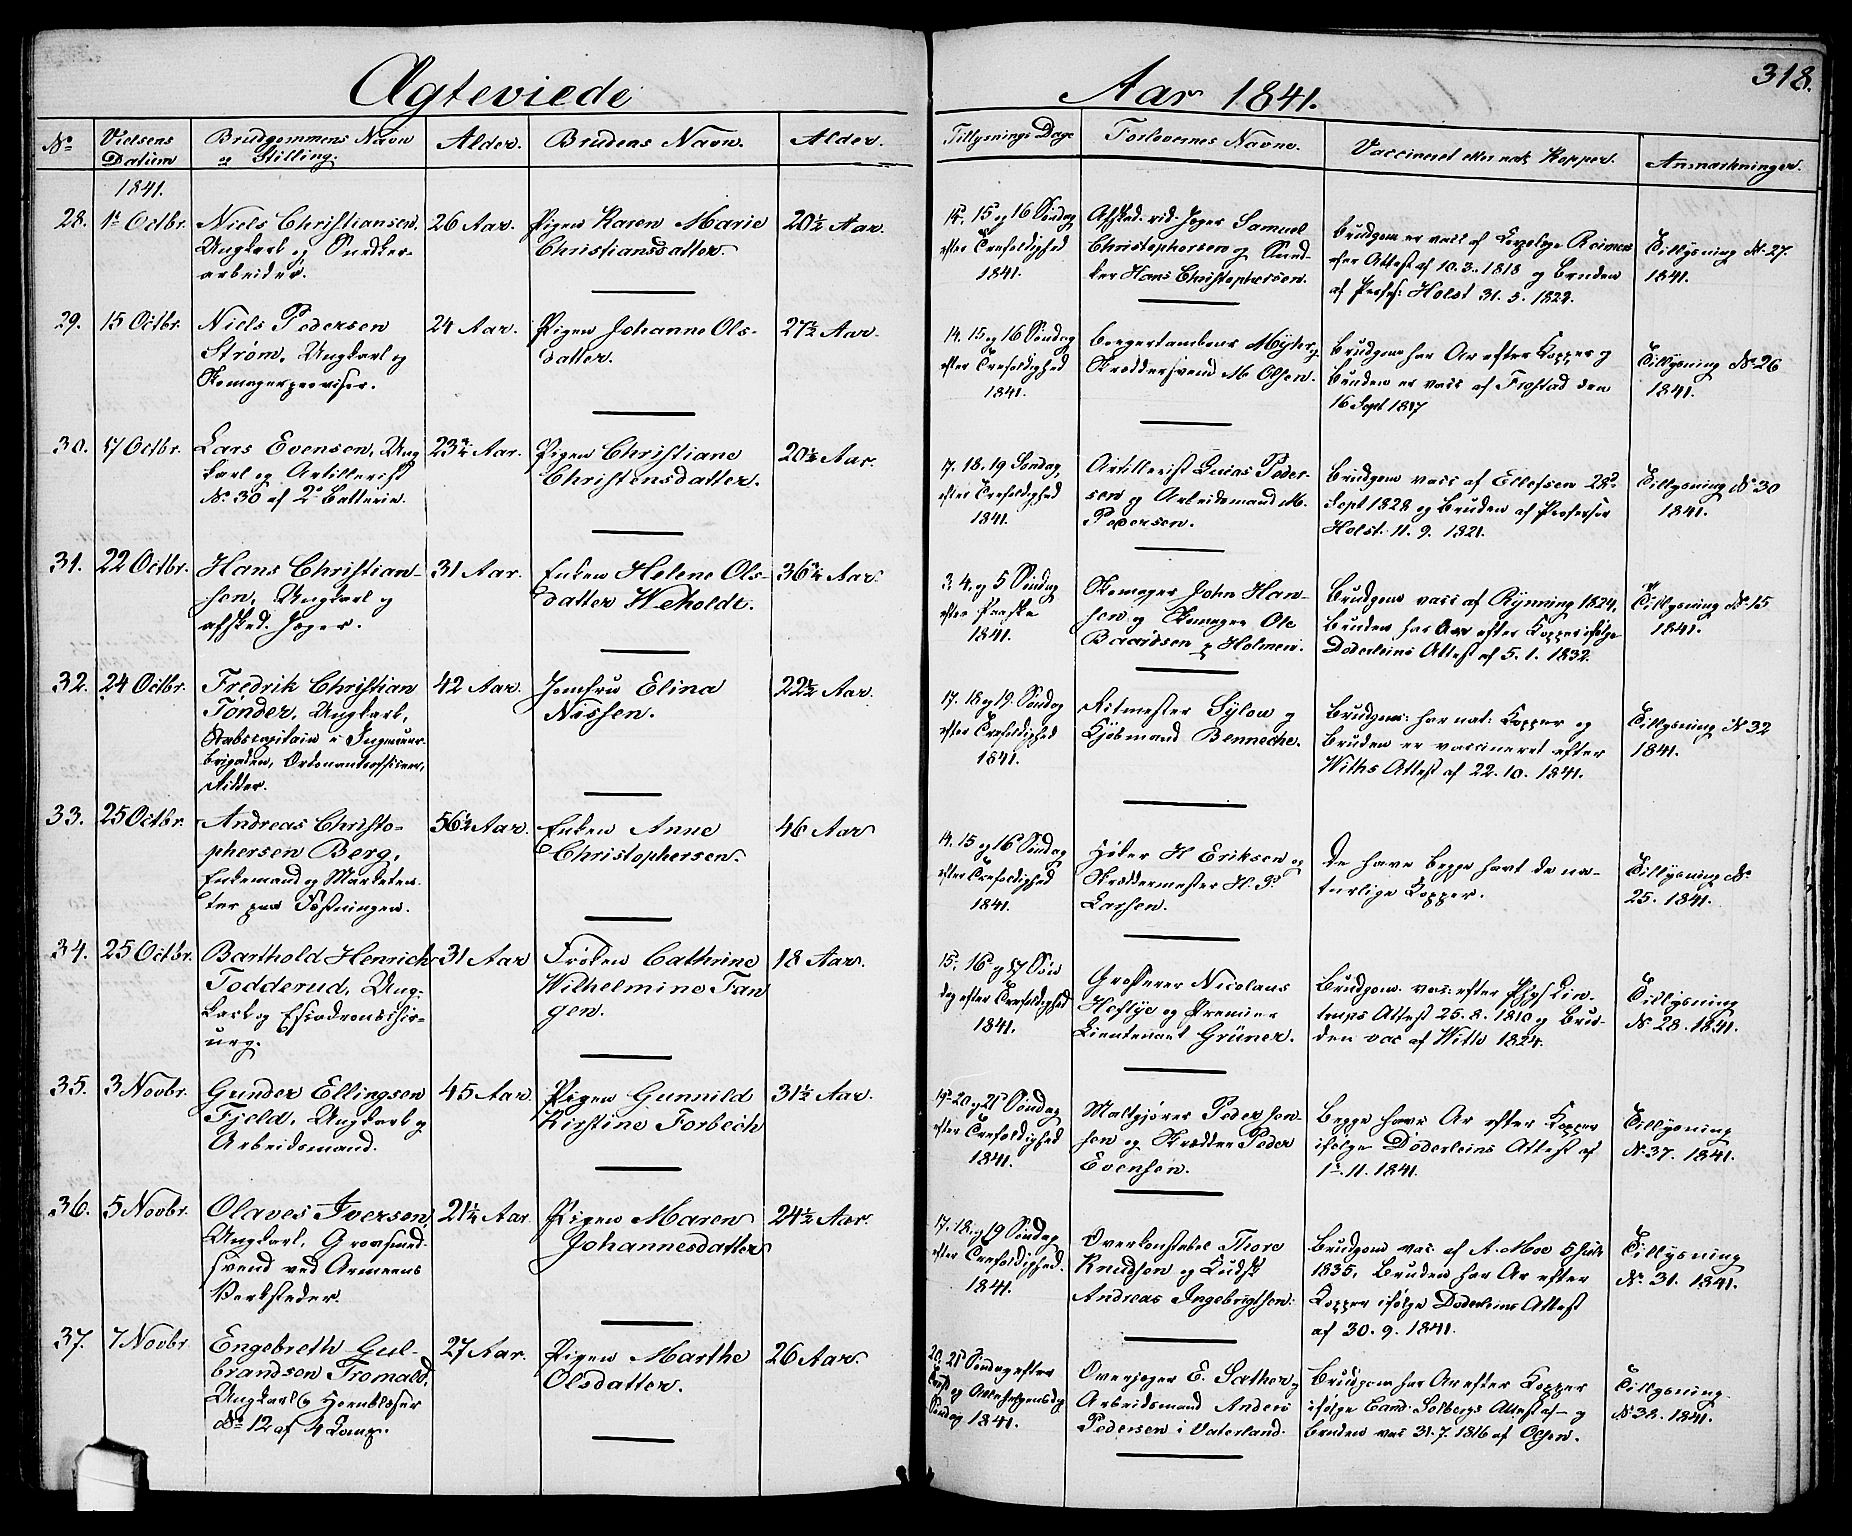 Ægteviede
No
Vielsens
Datum
Brudgommens Navn
og Stilling.
Alder.
Brudens Navn.
Alder.
1841.
28.
1ste Octbr.
Niels Christiansen,
Ungkarl og Snedker-
arbeider.
26 Aar.
Pigen Karen Marie
Christiansdatter.
20½ Aar.
29.
15 Octbr.
Niels Pedersen
Strøm, Ungkarl og
Skomagerprovisor.
24 Aar.
Pigen Johanne Ols-
datter.
27½ Aar.
30.
17 Octbr.
Lars Evensen, Ung
karl og Artillerist
No 30 af 2den Batterie.
23¾ Aar.
Pigen Christiane
Christensdatter.
20¾ Aar.
31.
22 Octbr.
Hans Christian-
sen, Ungkarl og
afsked. Jæger.
31 Aar.
Enken Helene Ols-
datter Weholdt.
36¾ Aar.
32.
24 Octbr.
Fredrik Christian
Tonder, Ungkarl,
Stabscapitain i Ingenieur-
brigaden, Ordonantsofficeer,
Ridder.
42 Aar.
Jomfru Elina
Nissen.
22½ Aar.
33.
25 Octbr.
Andreas Christo-
phersen Berg,
Enkemand og Marketen-
ter paa Fæstningen.
56½ Aar.
Enken Anne
Christophersen.
46 Aar
34.
25 Octbr.
Barthold Henrich
Todderud, Ung-
karl og Escadronschir-
urg.
31 Aar
Frøken Cathrine
Wilhelmine Fan
gen.
18 Aar.
35.
3 Novbr.
Gunder Ellingsen
Fjeld, Ungkarl og
Arbeidsmand.
45 Aar.
Pigen Gunnild
Kirstine Torbech
31½ Aar.
36.
5 Novbr.
Olaves Iversen,
Ungkarl, Grovsmed-
svend ved Armeens
Verksteder.
21¼ Aar
Pigen Maren
Johannesdatter
24½ Aar.
37.
7 Novbr
Engebreth Gul-
brandsen Tromald,
Ungkarl og Hornblæser
No 12 af 4 Comp.
27 Aar.
Pigen Marthe
Olsdatter.
26 Aar.
Aar 1841.
318.
Tillysnings Dage
Forlovernes Navne.
Vaccineret eller nat. Kopper.
Anmærkninger.
14. 15 og 16 Søndag
efter Trefoldighed
1841.
Afsked. rid. Jæger Samuel
Christophersen og Sned-
ker Hans Christophersen.
Brudgom er vacc af
efter Attest af 10.3.1818 og Bruden
af Profes: Holst 31.5.1822.
Tillysning No 27.
1841.
14. 15 og 16 Søndag
efter Trefoldighed
1841.
Borgertambour Myhr og
Skræddersvend M Olsen.
Brudgom har Ar efter Kopper og
Bruden er vacc af Frostad den
16 Sept 1817
Tillysning No 26
1841.
17. 18. 19 Søndag
efter Trefoldighed
1841.
Artillerist Lucas Peder-
sen og Arbeidsmand M.
Pedersen.
Brudgom vacc af Ellefsen 28de
Sept 1828 og Bruden af Professor
Holst 11.9.1821.
Tillysning No 30
1841.
3. 4. og 5 Søndag
efter Paaske
1841.
Skomager John Han-
sen og Skomager Ole
Baardsen p. Holmen.
Brudgom vacc af Rynning 1824,
Bruden har Ar efter Kopper ifølge
Döderleins Attest af 5.1.1832.
Tillysning No 15
1841.
17. 18 og 19. Søndag
efter Trefoldighed
1841.
Ritmester Sylow og
Kjøbmand Benneche.
Brudgom: har nat: Kopper og
Bruden er vaccineret efter
Withs Attest af 22.10.1841.
Tillysning No 32
1841.
14. 15 og 16 Søndag
efter Trefoldighed
1841.
Høker H Eriksen og
Skræddermester H. P.
Larsen.
De have begge havt de na-
turlige Kopper.
Tillysning No
25. 1841.
15. 16 og 17 Søn
dag efter Trefoldighed
1841.
Grosserer Nicolaus
Heftye og Premier
Lieutenant Grüner.
Brudgom. vac: efter Phys Lin-
trups Attest 25.8.1810 og Bru-
den vac af With 1824.
Tillysning
No 28. 1841.
19. 20 og 21 Søndag
efter Trefoldighed
1841.
Maltgjører Peder Jon-
sen og Skrædder Peder
Evensen.
Begge have Ar efter Kopper
ifølge Döderleins Attest af
1ste.11.1841.
Tillysning
No 37. 1841.
17. 18. og 19 Søndag
efter Trefoldighed.
1841.
Overkonstabel Thore
Knudsen og Kudsk
Andreas Ingebrigtsen.
Brudgom vac. af A. Moe 5 Juli
1835, Bruden har Ar efter
Kopper ifølge Döderleins Attest
af 30.9.1841.
Tillysning
No 31. 1841.
20. 21 Søndag efter
Trefold og Allehelgensdag
Søndag 1841.
Overjæger E. Sæther og
Arbeidsmand Anders
Pedersen i Vaterland.
Brudgom har Ar efter Kopper
ifølge Cand. Solbergs Attest af – og
Bruden vac 31.7.1816 af Olsen.
Tillysning
No 38. 1841.